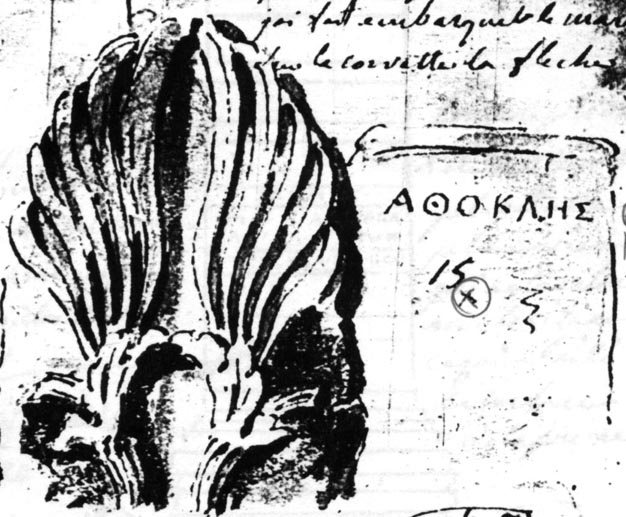 j'ai fait embarquer le mar
sur la corvette la fleche
ΑΘΟΚΛΗΣ
15
x